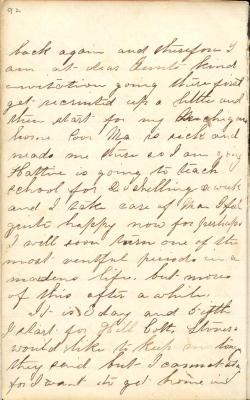 92
back again and therefore I
am at dear Aunts kind
invitation going there first
get recruited up a little and
then start for my
home Poor Ma is sick and
needs me there so I am going
Hattie is going to teach
school for 20 shilling a week
and I take care of Ma I feel
quite happy now for perhaps
I will soon turn one of the
most eventful periods in a
maidens life. but more
of this after a while.
It is day and
I start for Both
would like to keep me long
they said but I cannot stay
for I want to get home and